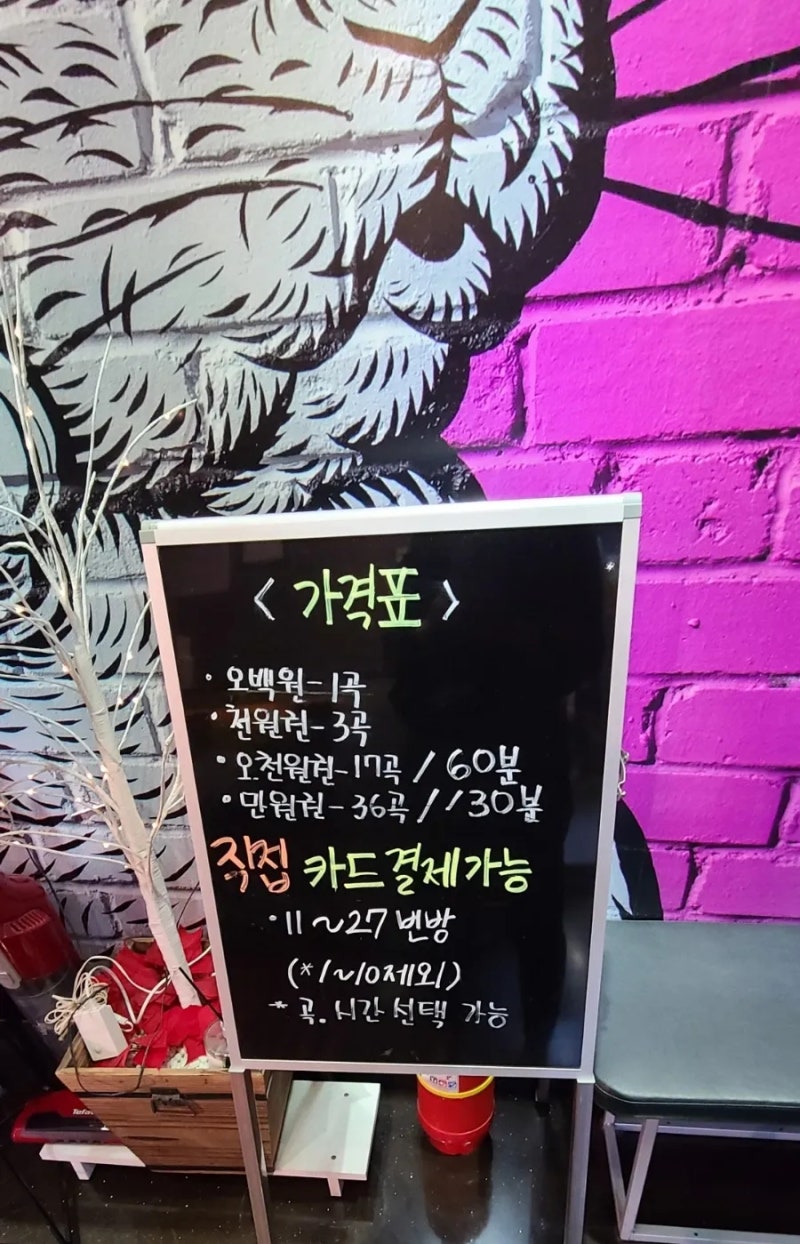 < 가격표 >
· 오백원 - 1곡
· 천원권 - 3곡
· 오천원권 - 17곡 / 60분
· 만원권 - 36곡 / 130분
직접 카드결제가능
· 11 ~ 27 번방
(* 1 ~ 10 제외)
* 곡. 시간 선택 가능
Tefal